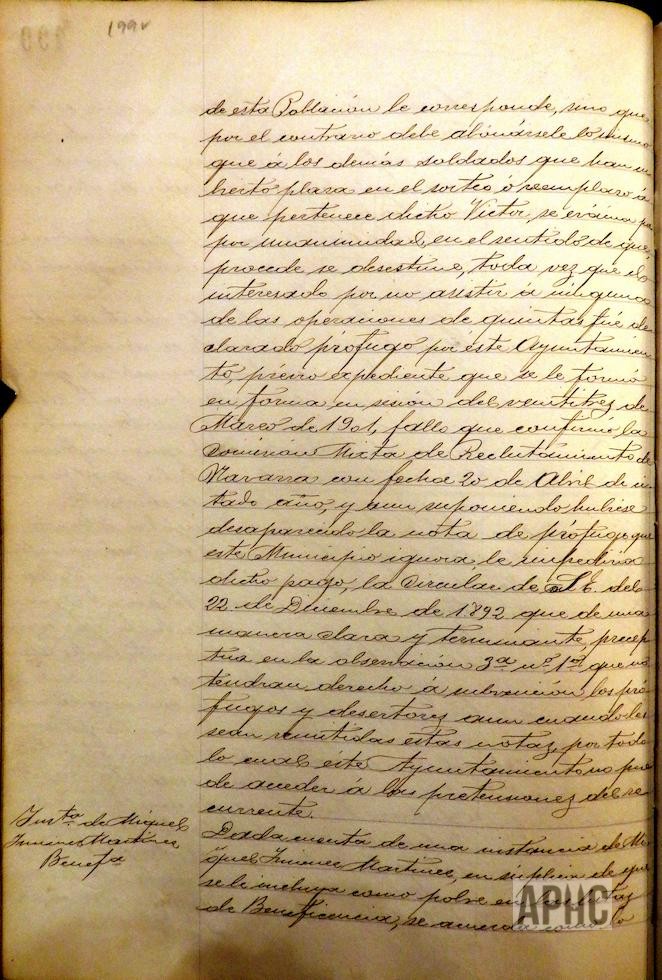 199v
de esta Población le corresponde, sino que
por el contrario debe abonársele lo mismo
que á los demás soldados que han cu
bierto plaza en el sorteo ó reemplazo á
que pertenece dicho Victor, se
por unanimidad, en el sentido de que
procede se desestime, toda vez que el
interesado por no asistir á ninguna
de las operaciones de quintas fué de
clarado prófugo por este Ayuntamien
to, previo expediente que se le formó
en forma en sesión del veintitrez de
Marzo de 1901, fallo que confirmó la
Comision Mixta de Reclutamiento de
Navarra con fecha 20 de Abril de ci
tado año, y aun suponiendo hubiese
desaparecido la nota de prófugo, que
este Municipio ignora, le impediria
dicho pago, la Circular de S.E. del
22 de Diciembre de 1892 que de una
manera clara y terminante, precep
túa en la observación 3ª nº 1º que no
tendran derecho á subvención los pró
fugos y desertores aun cuando les
sean remitidas estas notas, por todo
lo cual éste Ayuntamiento no pue
de acceder á las pretensiones del re
currente.
Instª. de Miguel
Jimenez Martinez
Benefª
Dada cuenta de una instancia de Mi
guel Jimenez Martinez, en súplica de que
se le incluya como pobre en las listas
de Beneficencia, se acuerda como lo
APHC